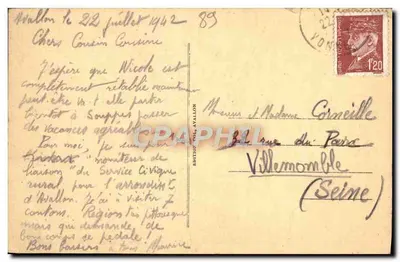 Avallon le 22 juillet 1942
89
Chers Cousin Cousine
J'espère que Nicole est
complètement rétablie maintenant
peut-être va-t-elle partir
bientôt à Souppes passer
des vacances agréables
Pour moi, je suis
"moniteur de
liaison du Service Civique
rural pour l'arrondist
d'Avallon. J'ai à visiter 7
cantons. Région très pittoresque
mais qui demande de
bons coups de pédale !
Bons baisers à tous Maurice
EDITION AVALLON
CPARAMA
YON
1F20
Monsieur et Madame Corneille
rue du Parc
Villemomble
(Seine)